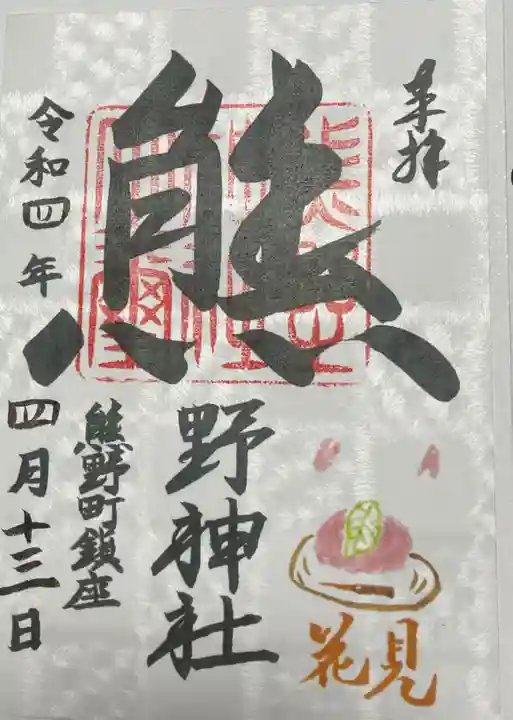 奉拝
熊野神社
花見
熊野町鎮座
令和四年
四月十三日